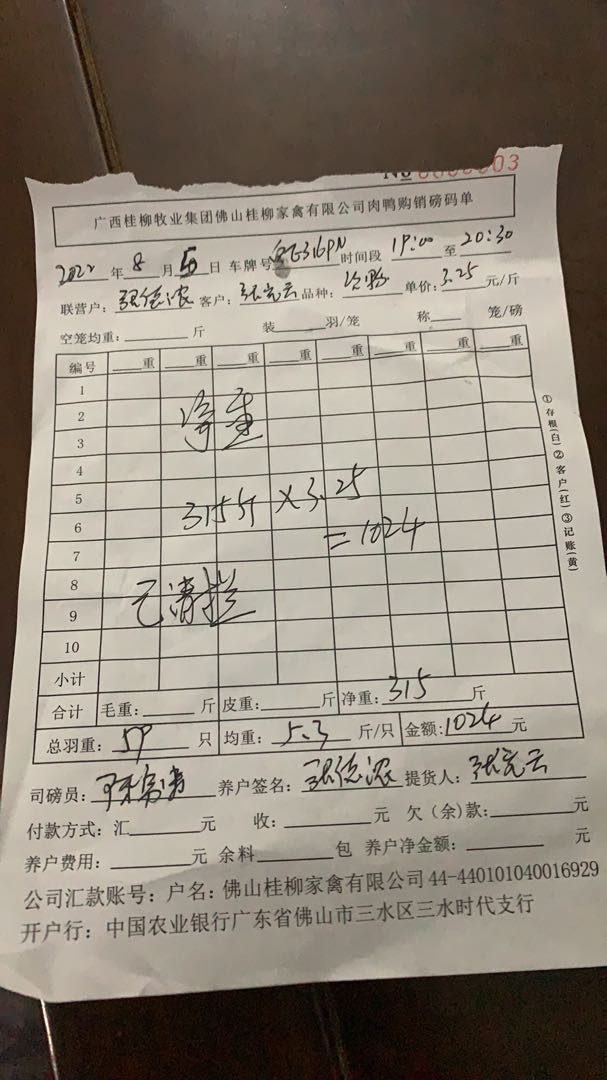 No 0000003
广西桂柳牧业集团佛山桂柳家禽有限公司肉鸭购销磅码单
2022 年 8 月 日 车牌号 时间段 19:00 至 20:30
联营户: 张德浓 客户: 张 云 品种: 单价: 3.25 元/斤
空笼均重: 斤 装 羽/笼 称 笼/磅
编号 重 重 重 重 重 重 重 重
1
2 净重
3
4
5 315斤 × 3.25
6 = 1024
7
8 已清栏
9
10
小计
合计 毛重: 斤 皮重: 斤 净重: 315 斤
总羽重: 59 只 均重: 5.3 斤/只 金额: 1024 元
司磅员: 养户签名: 张德浓 提货人: 张 云
付款方式: 汇 元 收: 元 欠(余)款: 元
养户费用: 元 余料 包 养户净金额: 元
公司汇款账号: 户名: 佛山桂柳家禽有限公司 44-440101040016929
开户行: 中国农业银行广东省佛山市三水区三水时代支行
①存根(白)②客户(红)③记账(黄)